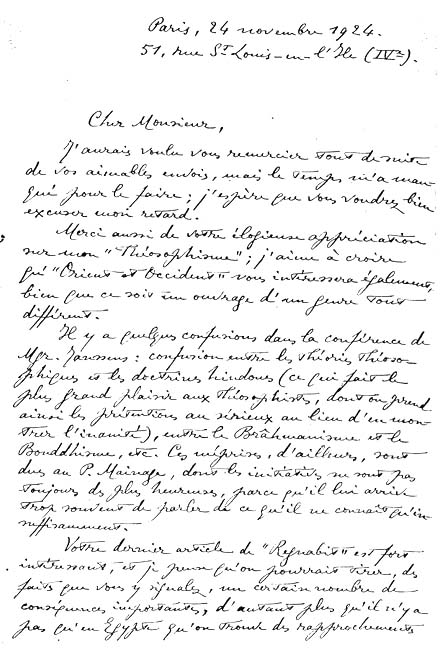 Paris, 24 novembre 1924.
51, rue St Louis-en-l'Ile (IVe).
Cher Monsieur,
J'aurais voulu vous remercier tout de suite
de vos aimables envois, mais le temps m'a man-
qué pour le faire ; j'espère que vous voudrez bien
excuser mon retard.
Merci aussi de votre élogieuse appréciation
sur mon "Théosophisme" ; j'aime à croire
qu'"Orient et Occident" vous intéressera également,
bien que ce soit un ouvrage d'un genre tout
différent.
Il y a quelques confusions dans la conférence de
Mgr. Janssens : confusion entre les théories théoso-
phiques et les doctrines hindoues (ce qui fait le
plus grand plaisir aux théosophistes, dont on prend
ainsi les prétentions au sérieux au lieu d'en mon-
trer l'inanité), entre le Brâhmanisme et le
Bouddhisme, etc. Ces méprises, d'ailleurs, sont
dues au P. Mainage, dont les initiatives ne sont pas
toujours des plus heureuses, parce qu'il lui arrive
trop souvent de parler de ce qu'il ne connaît qu'in-
suffisamment.
Votre dernier article de "Regnabit" est fort
intéressant, et je pense qu'on pourrait tirer, des
faits que vous y signalez, un certain nombre de
conséquences importantes, d'autant plus qu'il n'y a
pas qu'en Egypte qu'on trouve des rapprochements